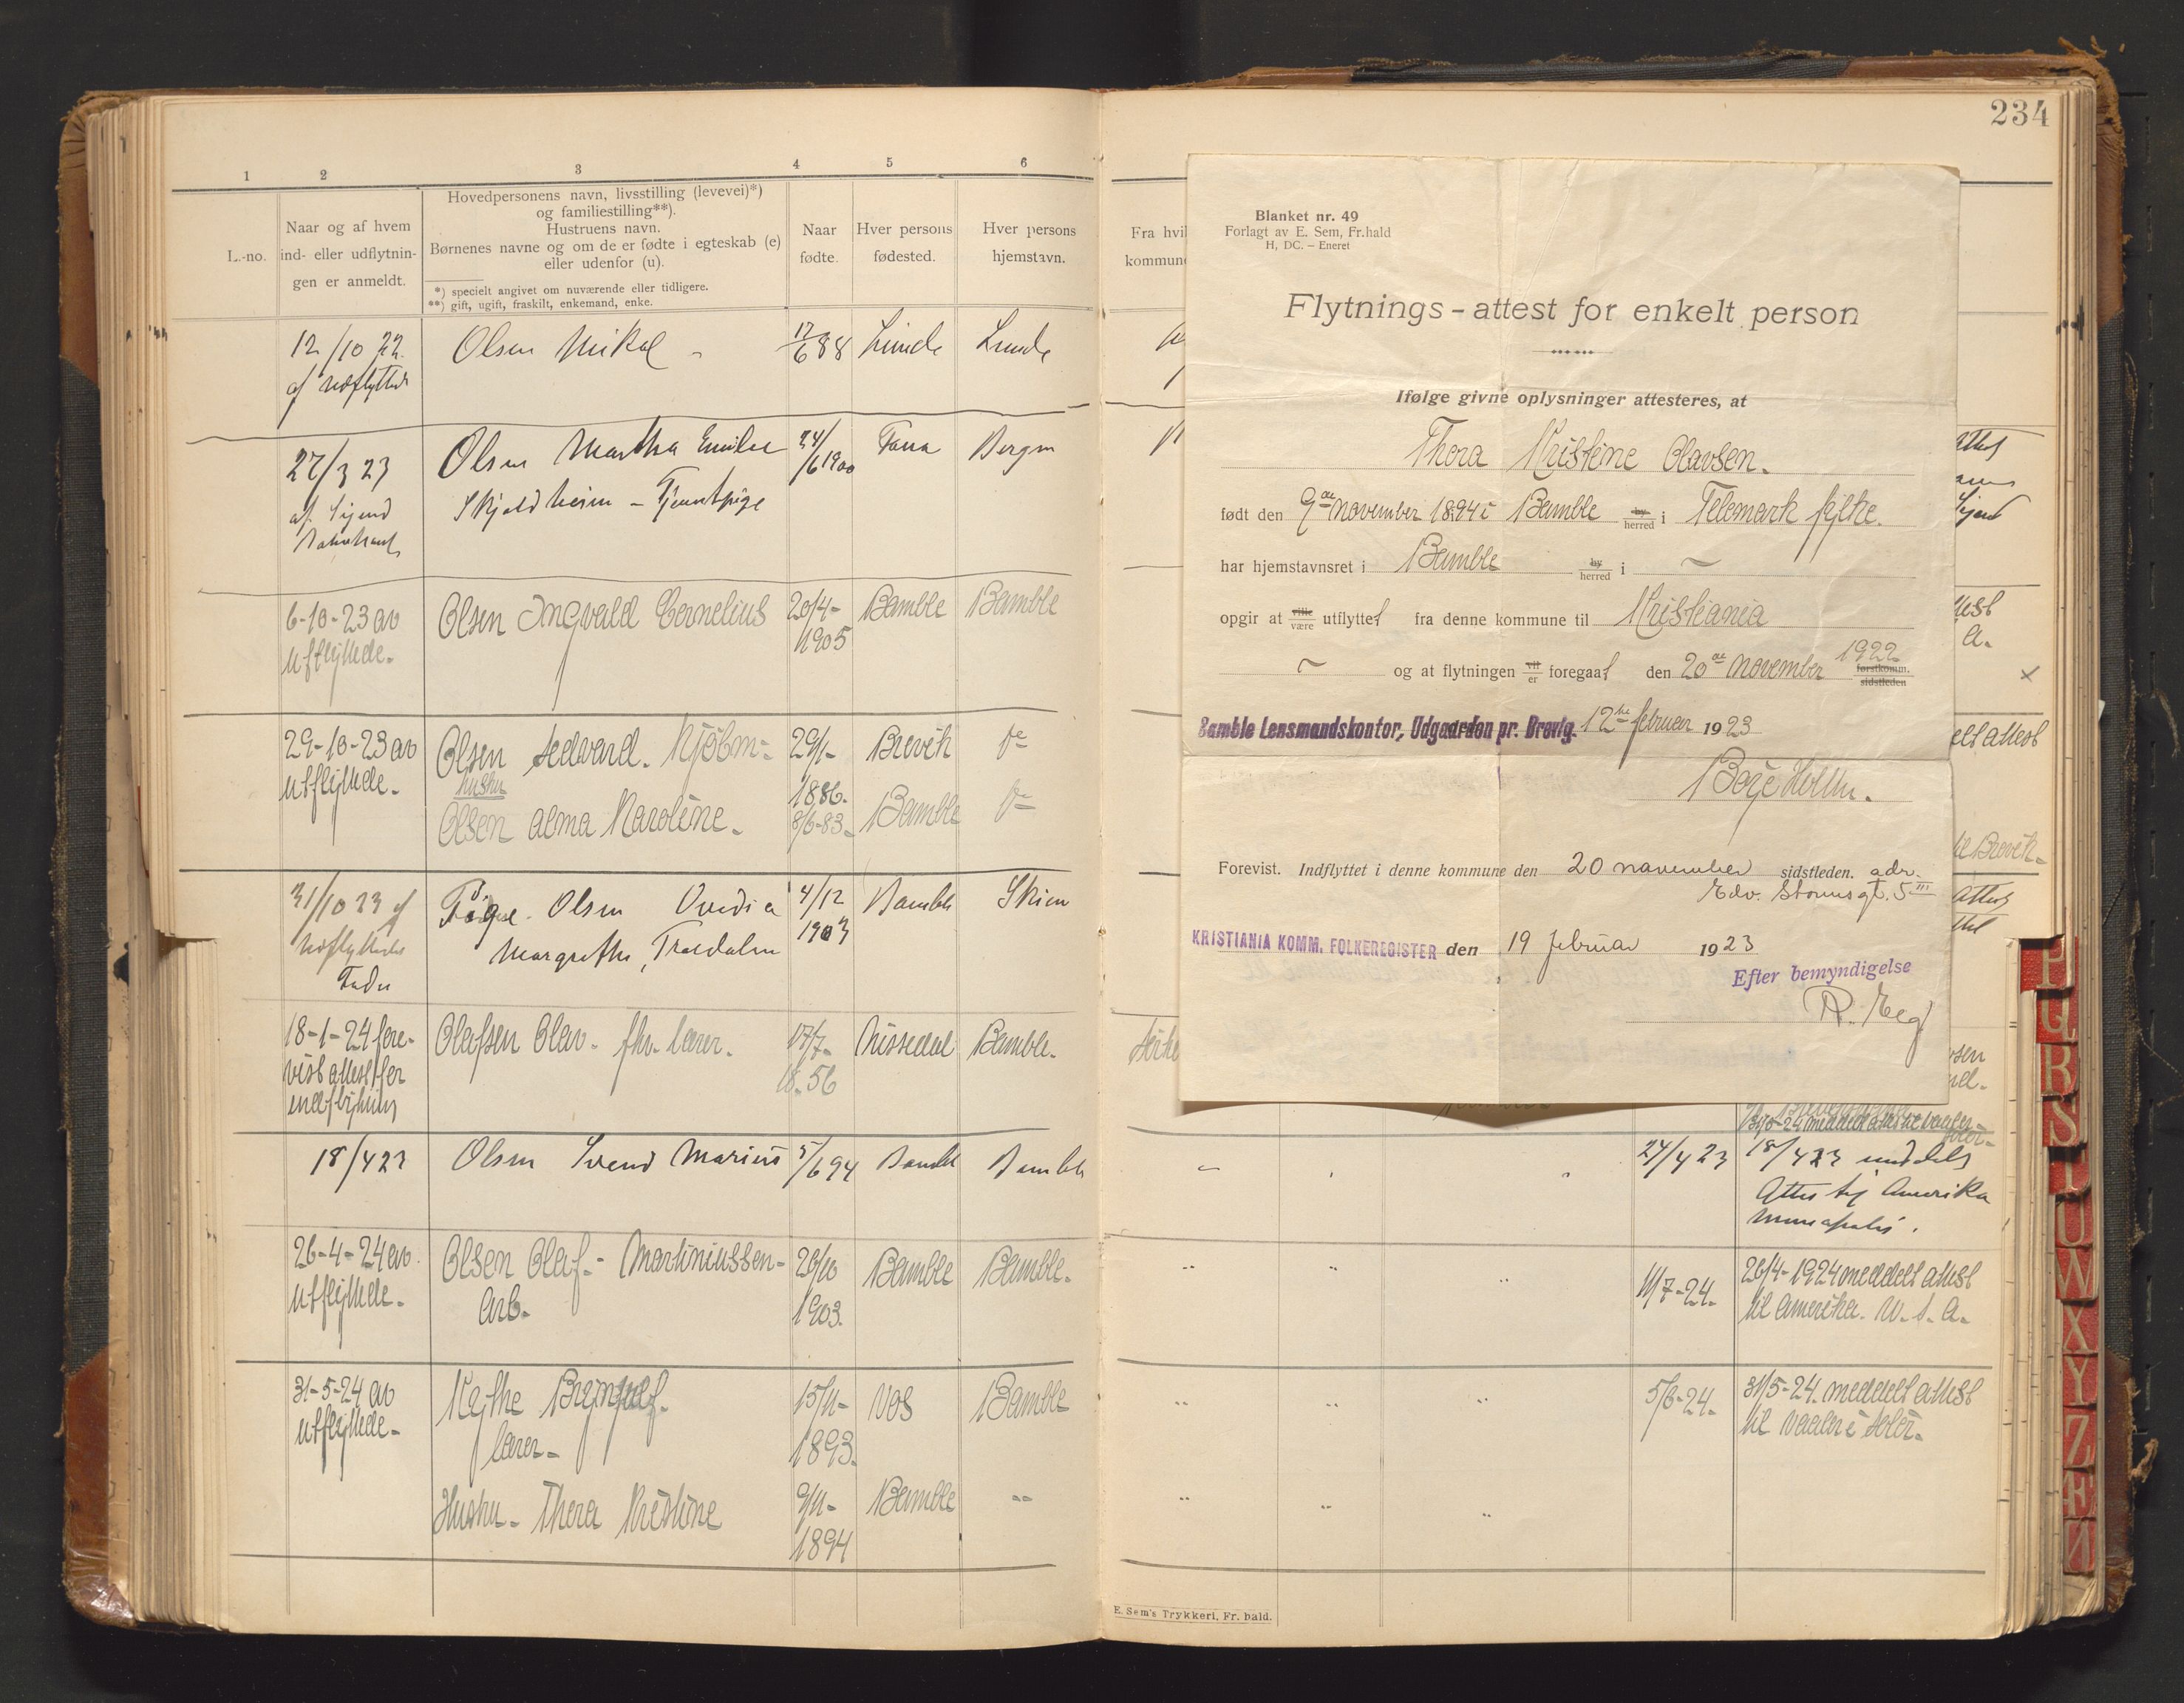 234
1 2 3 4 5 6
L.-no.
Naar og af hvem
ind- eller udflytnin-
gen er anmeldt.
Hovedpersonens navn, livsstilling (levevei)*)
og familiestilling**).
Hustruens navn.
Børnenes navne og om de er fødte i egteskab (e)
eller udenfor (u).
*) specielt angivet om nuværende eller tidligere.
**) gift, ugift, fraskilt, enkemand, enke.
Naar
fødte.
Hver persons
fødested.
Hver persons
hjemstavn.
12/10 22 Olsen Mikal 12/6 88 Lunde Lunde
27/3 23 Olsen Martha Emilie 24/6 1900 Fana Bergen
Skjoldheim - Tjenestpige
6-10-23 av Olsen Ingvald Cornelius 20/4- Bamble Bamble
utflyttede. 1905
29-10-23 av Olsen Edvard. Kjöbm- 29/1- Brevik
utflyttede. hustru 1886.
Olsen Alma Karoline. 8/6-83. Bamble
31/10 23 af Olsen Ovidia 4/12 Bamble Skien
Margrethe, Trædalen 1903
18-1-24 fore- Olafsen Olav. fhv. Lærer. 17/7- Nissedal Bamble.
vist attest for 18-56
indflytning
18/4 23 Olsen Svend Marius 5/6 94 Bamble Bamble
26-4-24 av Olsen Olaf.- Martiniussen- 26/10 Bamble Bamble.
utflyttede. Arb. 1903.
31-5-24 av 15/11- Vos Bamble
utflyttede. lærer- 1893.
Hustru- Thora Kristine 9/11- Bamble -"-
1894
Fra hvil
kommun
Blanket nr. 49
Forlagt av E. Sem, Fr.hald
H, DC. – Eneret
Flytnings-attest for enkelt person
Ifølge givne oplysninger attesteres, at
Thora Kristine Olavsen.
født den 9de november 1894 i Bamble by herred i Telemark fylke.
har hjemstavnsret i Bamble by herred i ~
opgir at ville være utflyttet fra denne kommune til Kristiania
~ og at flytningen vil er foregaat den 20de november 1922 førstkomm. sidstleden
Bamble Lensmandskontor, Udgaarden pr. Brevig. 12te februar 1923
Børge Holm.
Forevist. Indflyttet i denne kommune den 20 november sidstleden. adr.
Edv. Stormsgt. 5 III
KRISTIANIA KOMM. FOLKEREGISTER den 19 februar 1923
Efter bemyndigelse
attest
A.
×
elt attest
til Brevik-
attest
24/4 23 18/4 23 meddelt
Attest til Amerika
11/7-24. 26/4-1924 meddelt attest
til Amerika. U. S. A.
5/6-24. 31/5-24. meddelt attest
til Vaaler i Solör.
E. Sem's Trykkeri, Fr. hald.
P
Q
R
S
T
U
W
X
Y
Z
Æ
Ø